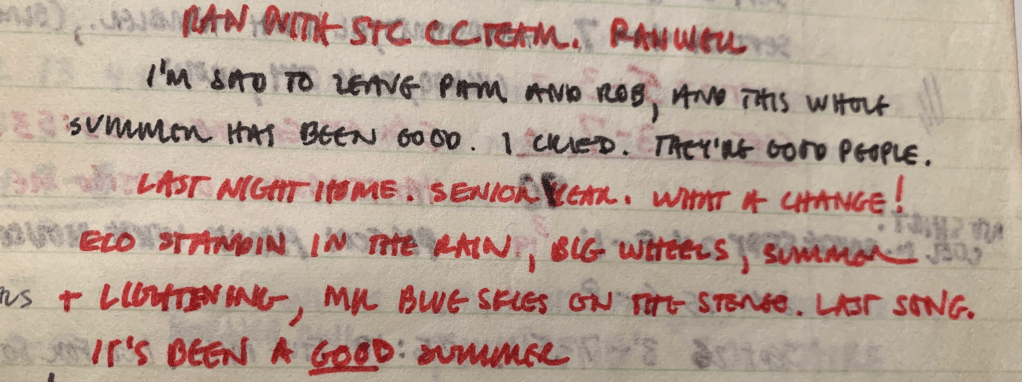 RAN WITH STC CC TEAM. RAN WELL
I'M SAD TO LEAVE PAM AND ROB, AND THIS WHOLE
SUMMER HAS BEEN GOOD. I CRIED. THEY'RE GOOD PEOPLE.
LAST NIGHT HOME. SENIOR YEAR. WHAT A CHANGE!
ELO STANDIN IN THE RAIN, BIG WHEELS, SUMMER
+ LIGHTENING, MR BLUE SKIES ON THE STEREO. LAST SONG.
IT'S BEEN A GOOD SUMMER